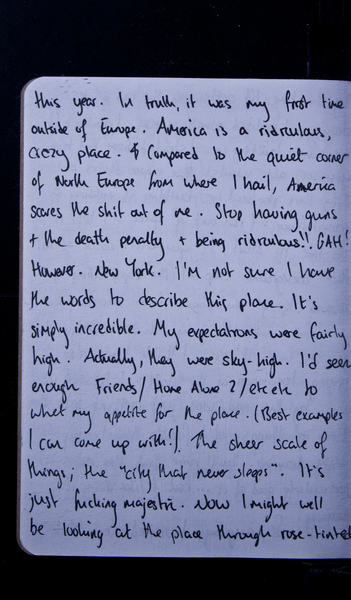 this year. In truth, it was my first time
outside of Europe. America is a ridiculous,
crazy place. & Compared to the quiet corner
of North Europe from where I hail, America
scares the shit out of me. Stop having guns
+ the death penalty + being ridiculous!! GAH!
However. New York. I'm not sure I have
the words to describe this place. It's
simply incredible. My expectations were fairly
high. Actually, they were sky-high. I'd seen
enough Friends/Home Alone 2/etc etc to
whet my appetite for the place. (Best examples
I can come up with!). The sheer scale of
things; the "city that never sleeps". It's
just fucking majestic. Now I might well
be looking at the place through rose-tinted